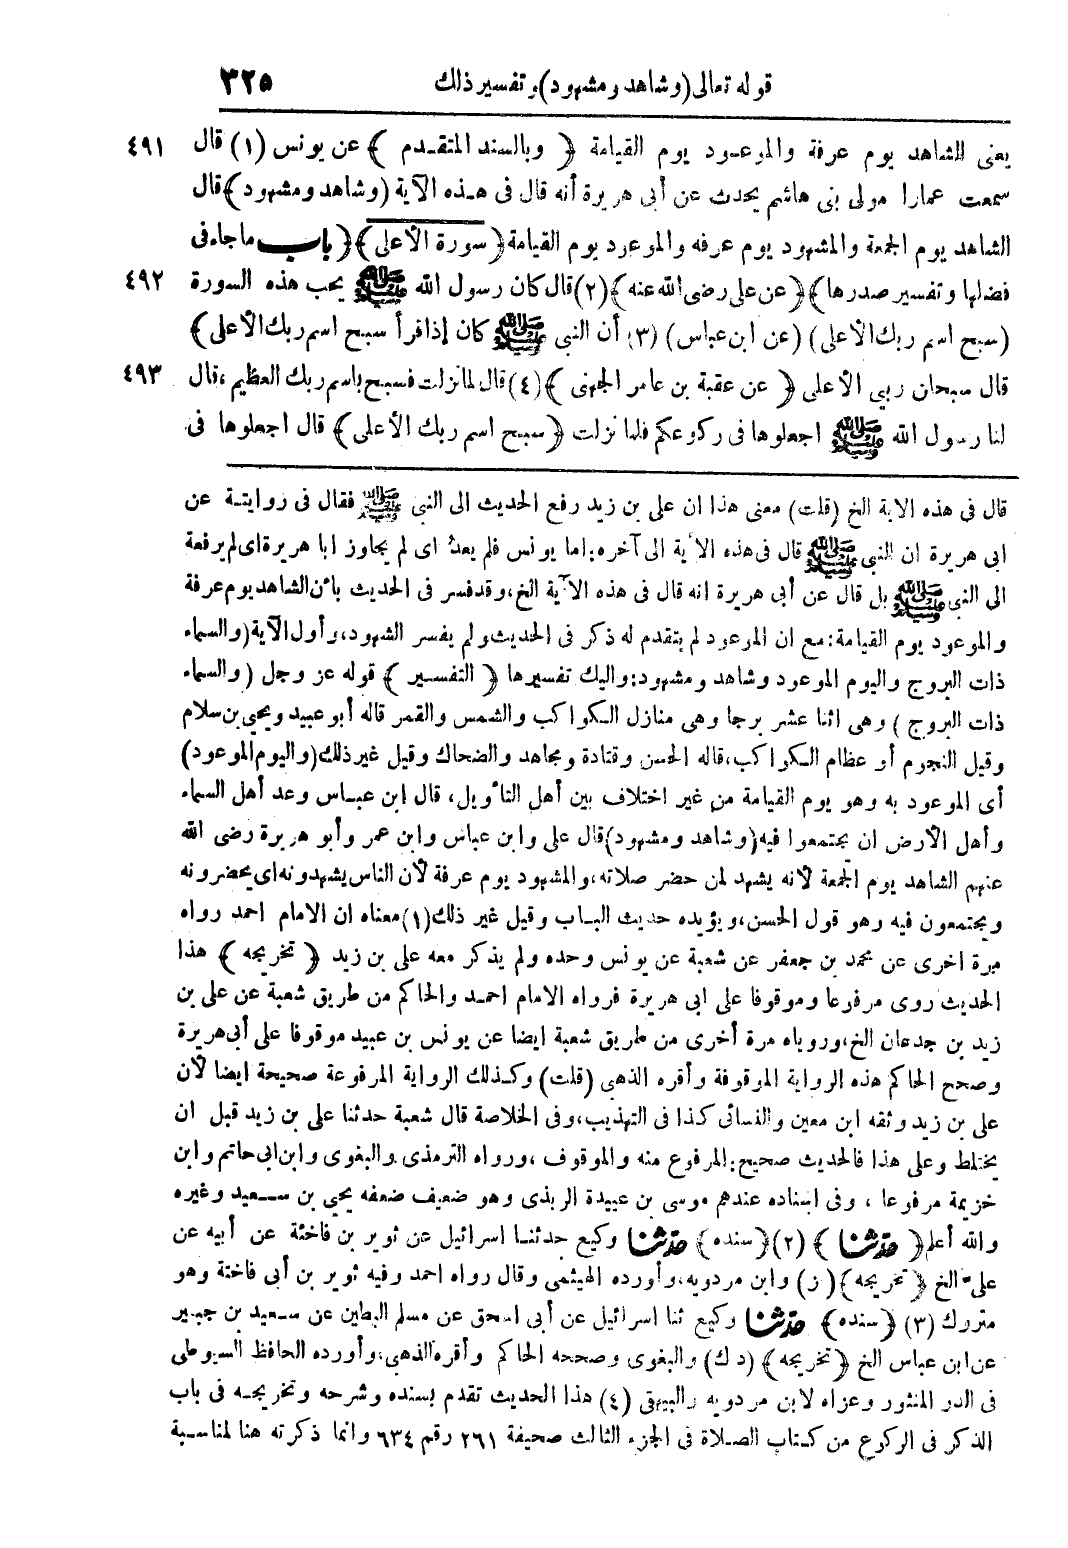 قوله تعالى (وشاهد ومشهود) وتفسير ذلك ٣٢٥
يعنى الشاهد يوم عرفة والموعود يوم القيامة ﴿ وبالسند المتقدم ﴾ عن يونس (١) قال ٤٩١
سمعت عمارا مولى بنى هاشم يحدث عن أبى هريرة أنه قال فى هذه الآية (وشاهد ومشهود) قال
الشاهد يوم الجمعة والمشهود يوم عرفه والموعود يوم القيامة ﴿ سورة الأعلى ﴾ ﴿ باب ما جاء فى
فضلها وتفسير صدرها ﴾ ﴿ عن على رضى الله عنه ﴾ (٢) قال كان رسول الله ﷺ يحب هذه السورة ٤٩٢
(سبح اسم ربك الأعلى) (عن ابن عباس) (٣) أن النبى ﷺ كان إذا قرأ سبح اسم ربك الأعلى ﴾
قال سبحان ربي الأعلى ﴿ عن عقبة بن عامر الجهنى ﴾ (٤) قال لما نزلت فسبح باسم ربك العظيم، قال ٤٩٣
لنا رسول الله ﷺ اجعلوها فى ركوعكم فلما نزلت ﴿ سبح اسم ربك الأعلى ﴾ قال اجعلوها فى
قال فى هذه الاية الخ (قلت) معنى هذا ان على بن زيد رفع الحديث الى النبى ﷺ فقال فى روايته عن
ابى هريرة ان النبى ﷺ قال فى هذه الآية الى آخره: اما يونس فلم يعد اى لم يجاوز ابا هريرة اى لم يرفعة
الى النبى ﷺ بل قال عن أبى هريرة انه قال فى هذه الآية الخ، وقد فسر فى الحديث بأن الشاهد يوم عرفة
والموعود يوم القيامة: مع ان الموعود لم يتقدم له ذكر فى الحديث ولم يفسر الشهود، وأول الآية (والسماء
ذات البروج واليوم الموعود وشاهد ومشهود: واليك تفسيرها ﴿ التفسير ﴾ قوله عز وجل (والسماء
ذات البروج) وهى اثنا عشر برجا وهى منازل الكواكب والشمس والقمر قاله أبو عبيد ويحيى بن سلام
وقيل النجوم أو عظام الكواكب، قاله الحسن وقتادة ومجاهد والضحاك وقيل غير ذلك (واليوم الموعود)
أى الموعود به وهو يوم القيامة من غير اختلاف بين أهل التأويل، قال ابن عباس وعد أهل السماء
وأهل الأرض ان يجتمعوا فيه (وشاهد ومشهود) قال على وابن عباس وابن عمر وأبو هريرة رضى الله
عنهم الشاهد يوم الجمعة لأنه يشهد لمن حضر صلاته، والمشهود يوم عرفة لأن الناس يشهدونه اى يحضرونه
ويجتمعون فيه وهو قول الحسن، ويؤيده حديث الباب وقيل غير ذلك (١) معناه ان الامام احمد رواه
مرة اخرى عن محمد بن جعفر عن شعبة عن يونس وحده ولم يذكر معه على بن زيد ﴿ تخريجه ﴾ هذا
الحديث روى مرفوعا وموقوفا على ابى هريرة فرواه الامام احمد والحاكم من طريق شعبة عن على بن
زيد بن جدعان الخ، وروياه مرة أخرى من طريق شعبة ايضا عن يونس بن عبيد موقوفا على أبى هريرة
وصحح الحاكم هذه الرواية الموقوفة وأقره الذهى (قلت) وكذلك الرواية المرفوعة صحيحة ايضا لأن
على بن زيد وثقه ابن معين والنسائى كذا فى التهذيب، وفى الخلاصة قال شعبة حدثنا على بن زيد قبل ان
يختلط وعلى هذا فالحديث صحيح: المرفوع منه والموقوف، ورواه الترمذى والبغوى وابن ابى حاتم وابن
خزيمة مرفوعا، وفى اسناده عندهم موسى بن عبيدة الربذى وهو ضعيف ضعفه يحيى بن سعيد وغيره
والله أعلم ﴿ حدثنا ﴾ (٢) ﴿سنده﴾ حدثنا وكيع حدثنا اسرائيل عن ثوير بن فاختة عن أبيه عن
على الخ ﴿تخريجه﴾ (ز) وابن مردويه، وأورده الهيثمى وقال رواه احمد وفيه ثوير بن أبى فاختة وهو
متروك (٣) ﴿سنده﴾ حدثنا وكيع ثنا اسرائيل عن أبى اسحق عن مسلم البطين عن سعيد بن جبير
عن ابن عباس الخ ﴿تخريجه﴾ (د ك) والبغوى وصححه الحاكم وأقره الذهى، وأورده الحافظ السيوطى
فى الدر المنثور وعزاه لابن مردويه والبيهقى (٤) هذا الحديث تقدم بسنده وشرحه وتخريجه فى باب
الذكر فى الركوع من كتاب الصلاة فى الجزء الثالث صحيفة ٢٦١ رقم ٦٣٤ وانما ذكرته هنا لمناسبة